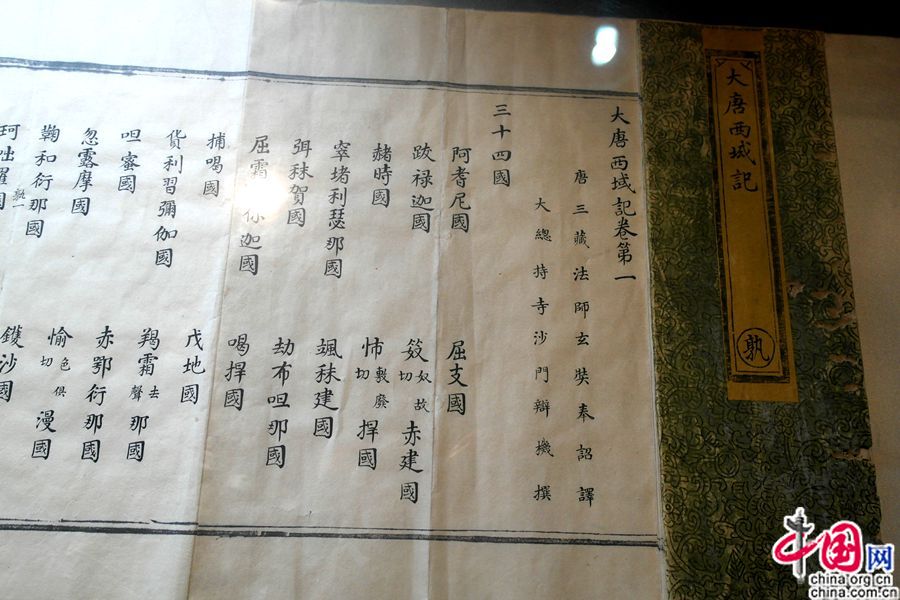 大唐西域記
孰
大唐西域記卷第一
唐三藏法師玄奘奉詔譯
大總持寺沙門辯機撰
三十四國
阿耆尼國 屈支國
跋禄迦國 笯奴故切赤建國
赭時國 㤄敷廢切捍國
窣堵利瑟那國 颯秣建國
弭秣賀國 劫布呾那國
屈霜你迦國 喝捍國
捕喝國 戊地國
貨利習彌伽國 羯霜去聲那國
呾蜜國 赤鄂衍那國
忽露摩國 愉色俱切漫國
鞠和衍那國 鑊沙國
孰一
珂咄羅國
中国网
china.org.cn
china.com.cn